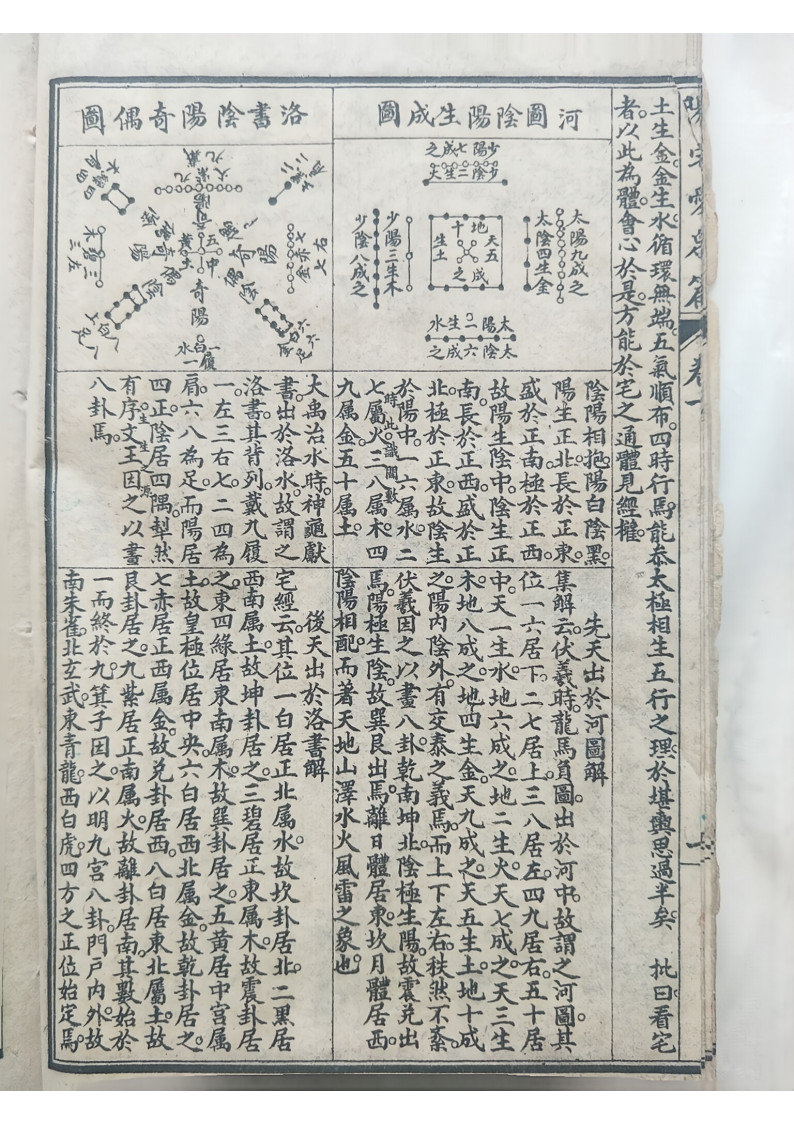 土生金。金生水。循環無端。五氣順布。四時行焉。能泰太極相生五行之理。於堪輿思過半矣。　批曰。看宅
者。以此為體。會心於是。方能於宅之通體見經權。
河圖陰陽生成圖
少陽七成之
少陰二生火
太陽九成之
太陰四生金
地
十
天五
生土
成
之
少陽三生木
少陰八成之
太陽一生水
太陰六成之
陰陽相抱。陽白陰黑。
陽生正北。長於正東。
盛於正南。極於正西。
故陽生陰中。陰生正
南。長於正西。盛於正
北。極於正東。故陰生
於陽中。一六屬水。二
七屬火。三八屬木。四
九属金。五十属土。
時此識開數
先天出於河圖解
集解云。伏羲時。龍馬負圖。出於河中。故謂之河圖。其
位一六居下。二七居上。三八居左。四九居右。五十居
中。天一生水。地六成之。地二生火。天七成之。天三生
木。地八成之。地四生金。天九成之。天五生土。地十成
之。陽內陰外。有交泰之義焉。而上下左右。秩然不紊。
伏羲因之。以畫八卦。乾南坤北。陰極生陽。故震兌出
焉。陽極生陰。故巽艮出焉。離日體居東。坎月體居西。
陰陽相配。而著天地山澤水火風雷之象也。
洛書陰陽奇偶圖
九紫火
戴九
五中
黃土
奇陽
左三
碧三木
右七
七赤金
一白水
履一
大禹治水時。神龜獻
書。出於洛水。故謂之
洛書。其背列戴九履
一。左三右七。二四為
肩。六八為足。而陽居
四正。陰居四隅。犁然
有序。文王因之以畫
八卦焉。
後天出於洛書解
宅經云。其位一白居正北属水。故坎卦居北。二黑居
西南属土。故坤卦居之。三碧居正東属木。故震卦居
之。東四綠居東南属木。故巽卦居之。五黄居中宮属
土。故皇極位居中央。六白居西北属金。故乾卦居之。
七赤居正西属金。故兌卦居西。八白居東北屬土。故
艮卦居之。九紫居正南属火。故離卦居南。其數始於
一而終於九。箕子因之。以明九宮八卦。門戶內外。故
南朱雀。北玄武。東青龍。西白虎。四方之正位始定焉。